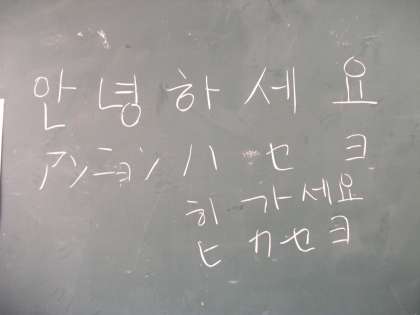 안녕하세요
アンニョンハセヨ
히가세요
ヒカセヨ